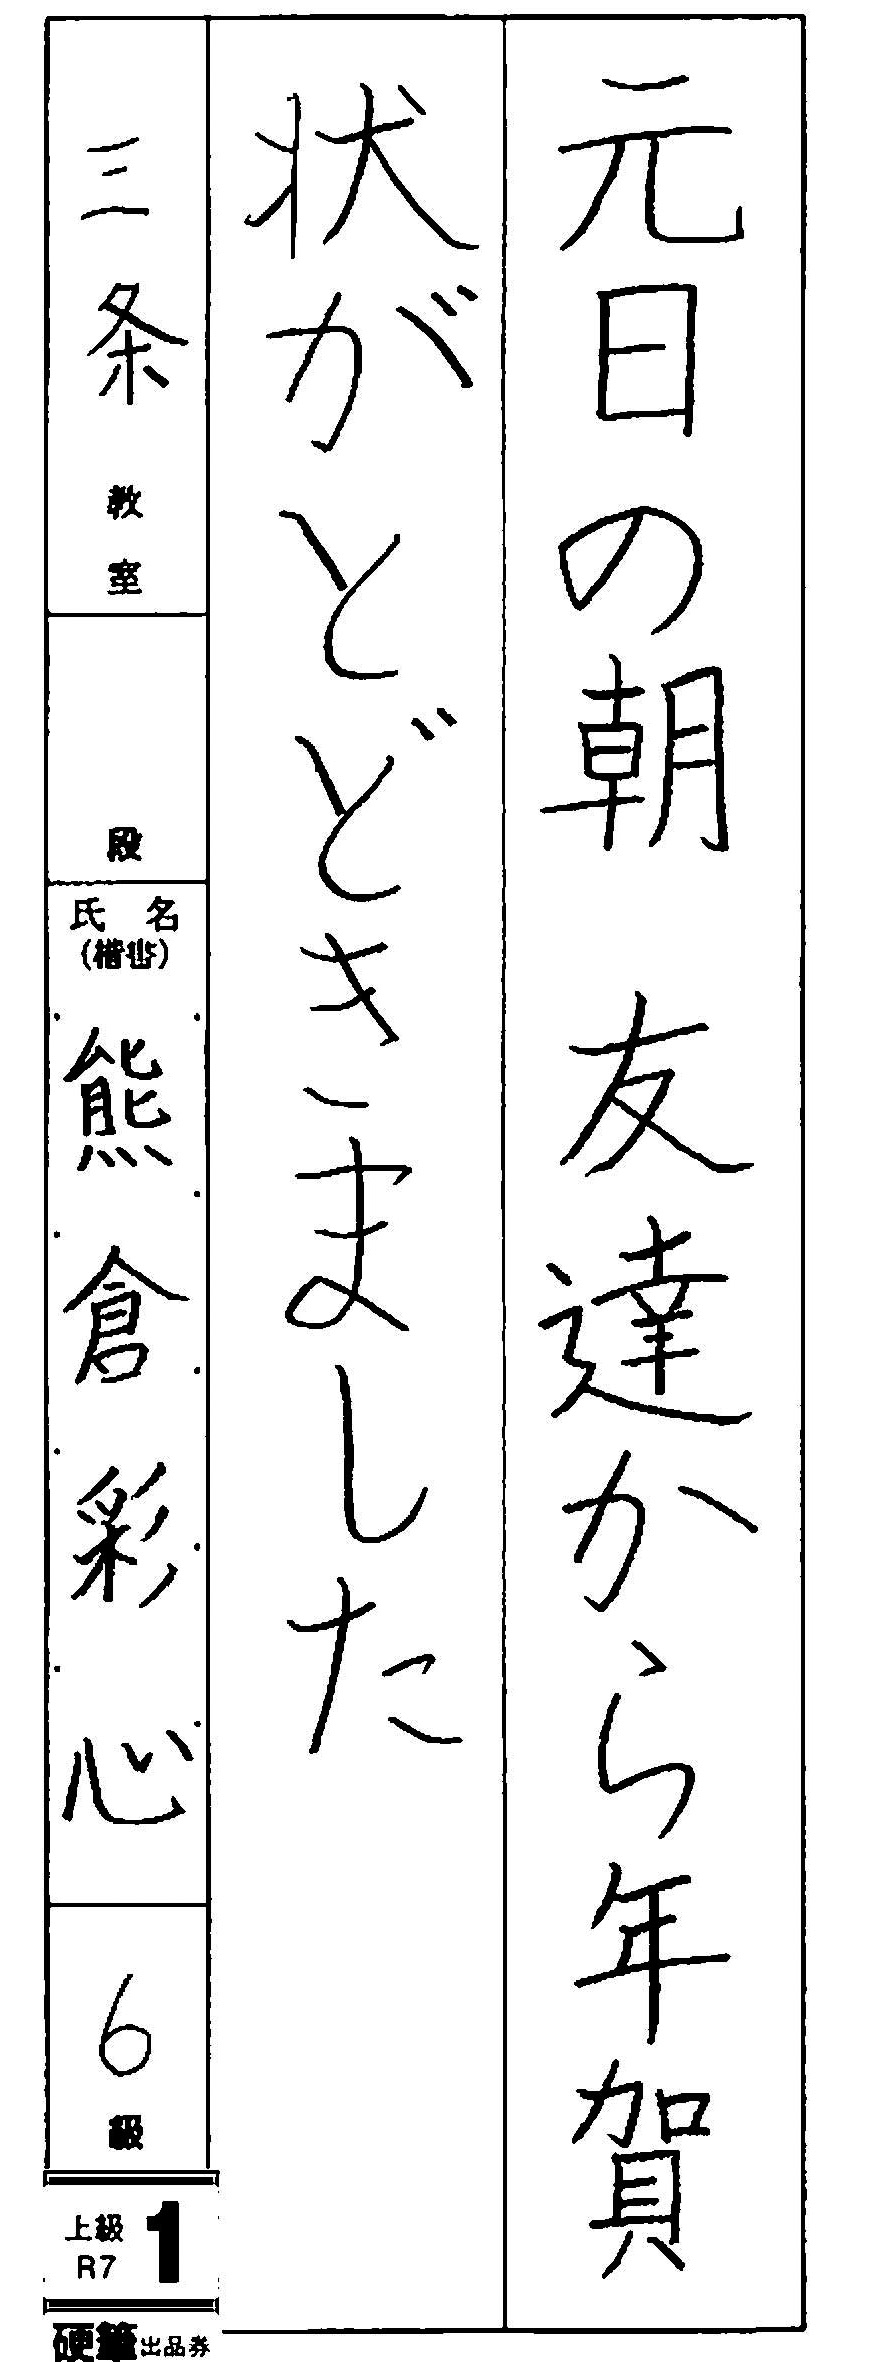 元日の朝 友達から年賀
状がとどきました
三条教室
段
氏名
(楷書)
熊倉彩心
6級
上級
R7
1
硬筆出品券